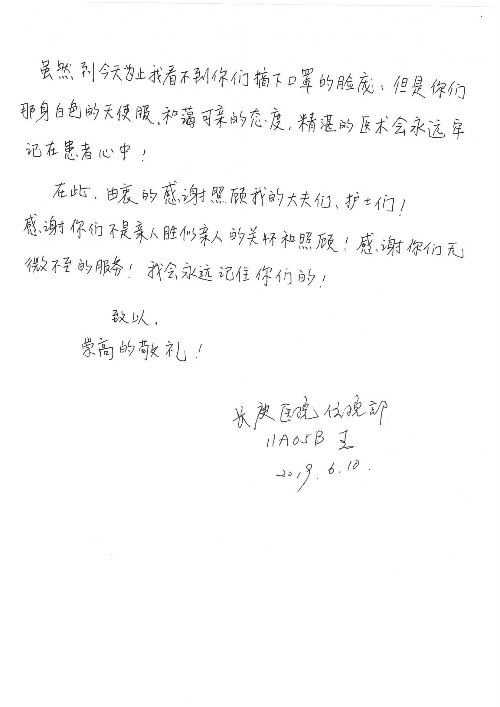 虽然到今天为止我看不到你们摘下口罩的脸庞、但是你们
那身白色的天使服、和蔼可亲的态度，精湛的医术会永远牢
记在患者心中！
在此，由衷的感谢照顾我的大夫们、护士们！
感谢你们不是亲人胜似亲人的关怀和照顾！感谢你们无
微不至的服务！我会永远记住你们的！
致以，
崇高的敬礼！
长庚医院住院部
11A05B 王
2019.6.10.